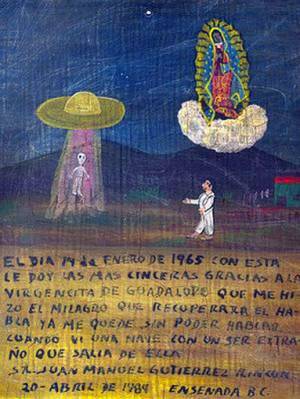 EL DIA 14 de ENERO DE 1965 CON ESTA
LE DOY LAS MAS CINCERAS GRACIAS A LA
VIRGENCITA DE GUADALUPE QUE ME HI
ZO EL MILAGRO QUE RECUPERARA EL HA
BLA YA ME QUEDE SIN PODER HABLAR
CUANDO VI UNA NAVE CON UN SER EXTRA
ÑO QUE SALIA DE ELLA
SR. JUAN MANUEL GUTIERREZ RINCON
20-ABRIL DE 1984 ENSENADA B.C.